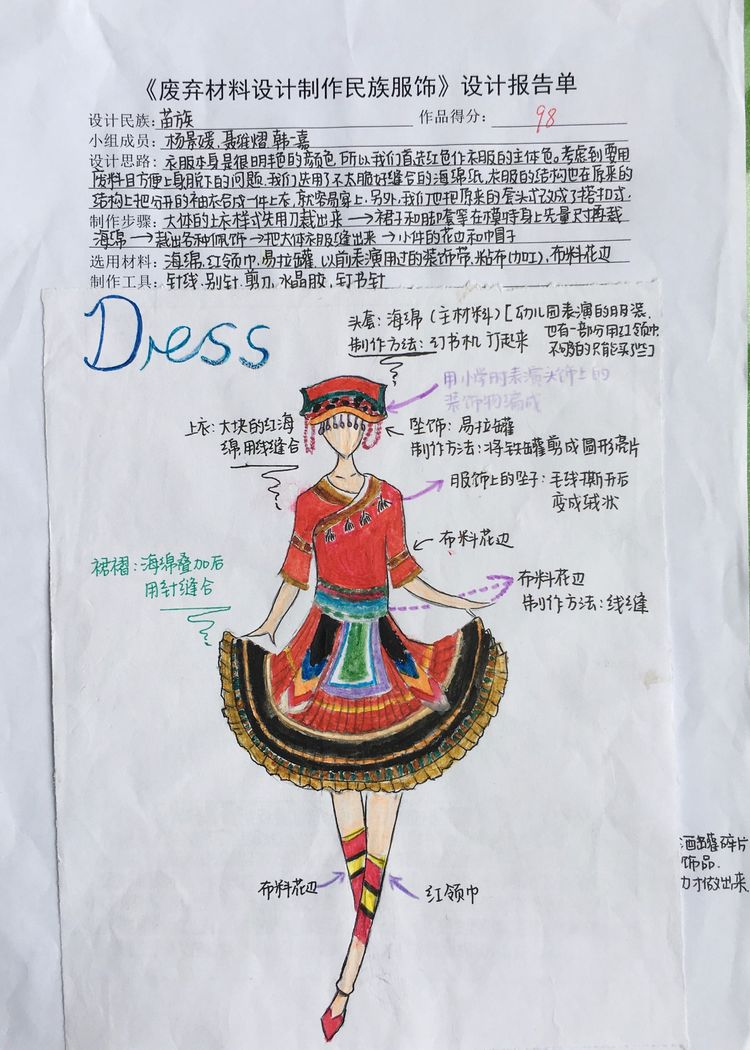 《废弃材料设计制作民族服饰》设计报告单
设计民族：苗族 作品得分：98
小组成员：杨景媛、聂维熠、韩一嘉
设计思路：衣服本身是很明艳的颜色，所以我们首选红色作衣服的主体色。考虑到要用
废料且方便上身脱下的问题，我们选用了不太脆好缝合的海绵纸，衣服的结构也在原来的
结构上把分开的袖衣合成一件上衣，就容易穿上。另外，我们也把原来的套头式改成了搭扣式。
制作步骤：大体的上衣样式先用刀裁出来→裙子和脚套等在模特身上先量尺寸再裁
海绵→裁出各种佩饰→把大体衣服缝出来→小件的花边和帽子
选用材料：海绵、红领巾、易拉罐、以前表演用过的装饰带、粘布(加红)，布料花边
制作工具：针线、别针、剪刀、水晶胶、钉书针
Dress
头套：海绵（主材料）[幼儿园表演的服装，
也有一部分用红领巾
制作方法：钉书机 钉起来 不够的只能买了些]
用小学时表演头饰上的
装饰物编成
上衣：大块的红海
绵，用线缝合
坠饰：易拉罐
制作方法：将铁罐剪成圆形亮片
服饰上的坠子：毛线撕开后
变成绒状
布料花边
裙褶：海绵叠加后
用针缝合
布料花边
制作方法：线缝
布料花边
红领巾
酒罐碎片
饰品.
才做出来